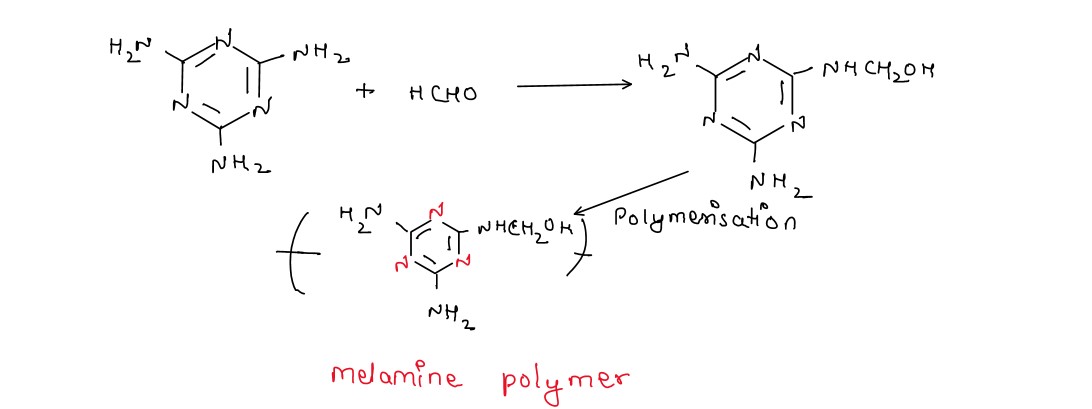 H₂N N NH₂ N N NH₂ + HCHO
H₂N N NHCH₂OH N N NH₂
Polymerisation
H₂N N NHCH₂OH N N NH₂
melamine polymer